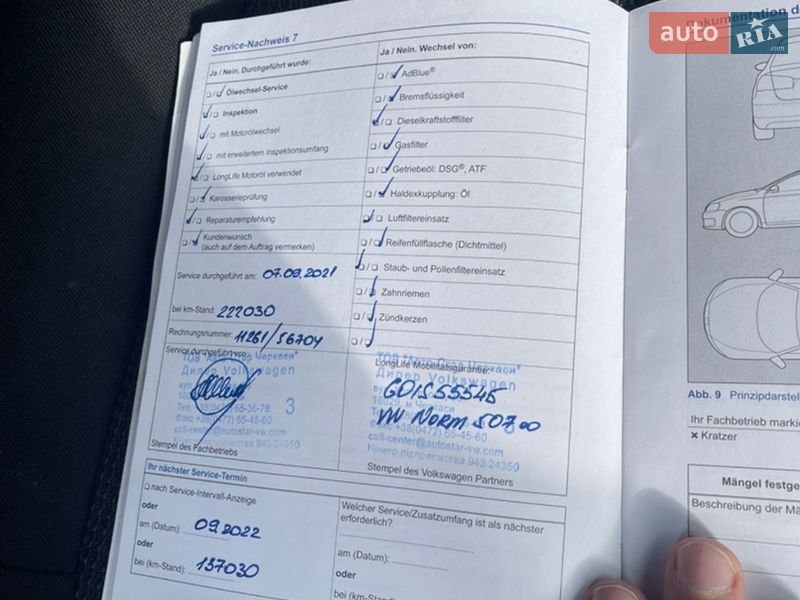 Service-Nachweis 7
Ja / Nein. Durchgeführt wurde:
Ölwechsel-Service
Inspektion
mit Motorölwechsel
mit erweitertem Inspektionsumfang
LongLife Motoröl verwendet
Karosserieprüfung
Reparaturempfehlung
Kundenwunsch
(auch auf dem Auftrag vermerken)
Service durchgeführt am: 07.09.2021
bei km-Stand: 222030
Rechnungsnummer: 11261/56704
Service durchgeführt von:
ТОВ "Авто Стар Черкаси"
Дилер Volkswagen
вул.
Тел. 65-36-78
3
Факс +38(0472) 65-45-60
call-center@autostar-vw.com
Номер підприємства 943 24350
Stempel des Fachbetriebs
Ja / Nein. Wechsel von:
AdBlue®
Bremsflüssigkeit
Dieselkraftstofffilter
Gasfilter
Getriebeöl: DSG®, ATF
Haldexkupplung: Öl
Luftfiltereinsatz
Reifenfüllflasche (Dichtmittel)
Staub- und Pollenfiltereinsatz
Zahnriemen
Zündkerzen
LongLife Mobilitätsgarantie:
ТОВ "Авто Стар Черкаси"
Дилер Volkswagen
G01S55545
18029, м.Черкаси
VW Norm 50700
Факс +38(0472) 65-45-60
call-center@autostar-vw.com
Номер підприємства 943 24350
Stempel des Volkswagen Partners
Ihr nächster Service-Termin
nach Service-Intervall-Anzeige
oder
am (Datum): 09.2022
oder
bei (km-Stand): 137030
Welcher Service/Zusatzumfang ist als nächster
erforderlich?
am (Datum):
oder
bei (km-Stand):
Dokumentation
auto RIA
Abb. 9 Prinzipdarstel
Ihr Fachbetrieb marki
× Kratzer
Mängel festge
Beschreibung der Mä